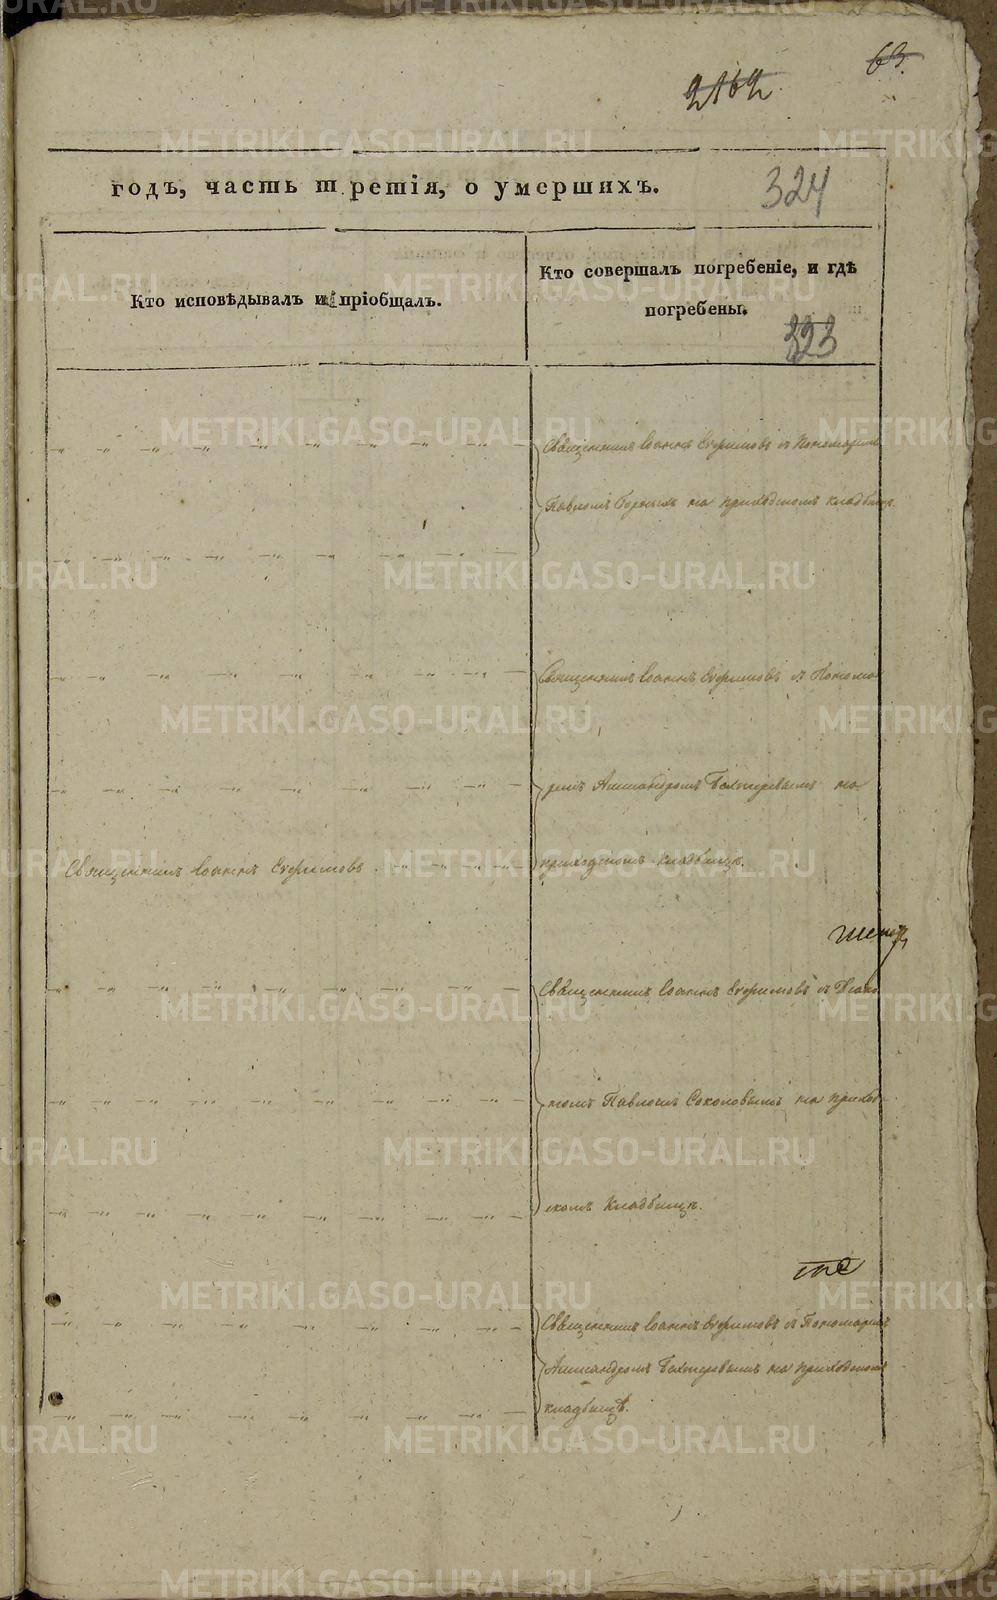 63.
2162
годъ, часть третія, о умершихъ.
324
Кто исповѣдывалъ и пріобщалъ.
Кто совершалъ погребеніе, и гдѣ
погребены.
323
Священникъ Іоаннъ Ефимовъ съ Пономаремъ
Павломъ на приходскомъ кладбищѣ.
Священникъ Іоаннъ Ефимовъ съ Понома-
ремъ Александромъ Бахтеревымъ на
Священникъ Іоаннъ Ефимовъ
приходскомъ кладбищѣ.
Священникъ Іоаннъ Ефимовъ съ Діако-
номъ Павломъ Соколовымъ на приход-
скомъ кладбищѣ.
Священникъ Іоаннъ Ефимовъ съ Пономаремъ
Александромъ Бахтеревымъ на приходскомъ
кладбищѣ.
METRIKI.GASO-URAL.RU